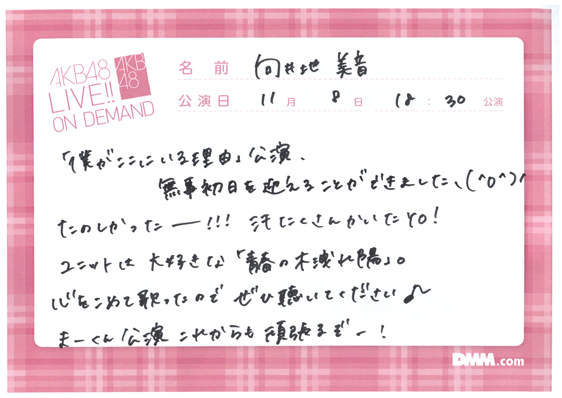 AKB48
LIVE!!
ON DEMAND
AKB
48
名前 向井地 美音
公演日 11月 8日 18:30公演
「僕がここにいる理由」公演、
無事初日を迎えることができました、(^o^)^
たのしかったー!!! 汗たくさんかいたYO!
ユニットは大好きな「青春の木洩れ陽」。
心をこめて歌ったので ぜひ聴いてください♪
まーくん公演 これからも頑張るぞー!
DMM.com